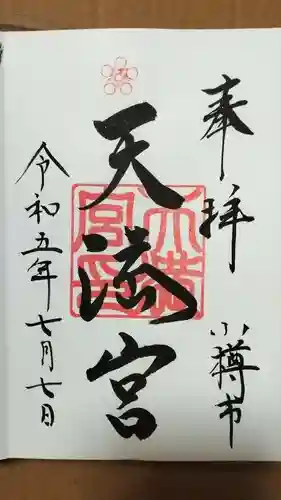 奉拝 小樽市
天満宮
令和五年七月七日